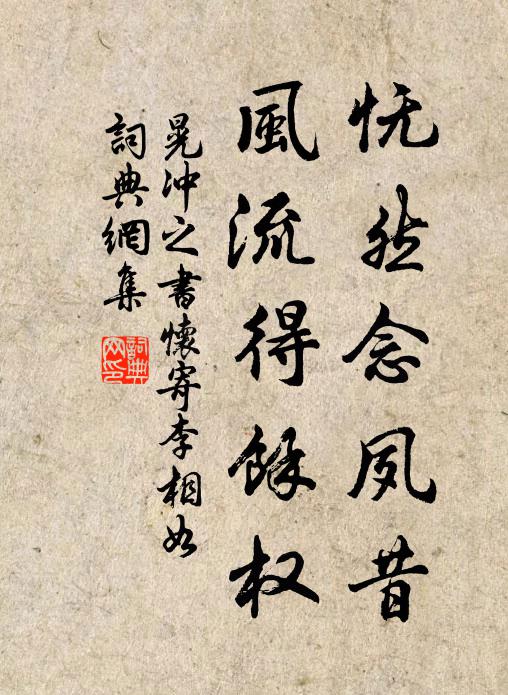 怃然念夙昔
風流得餘权
晃沖之書懷寄李相如
詞典網集
詞典
网印